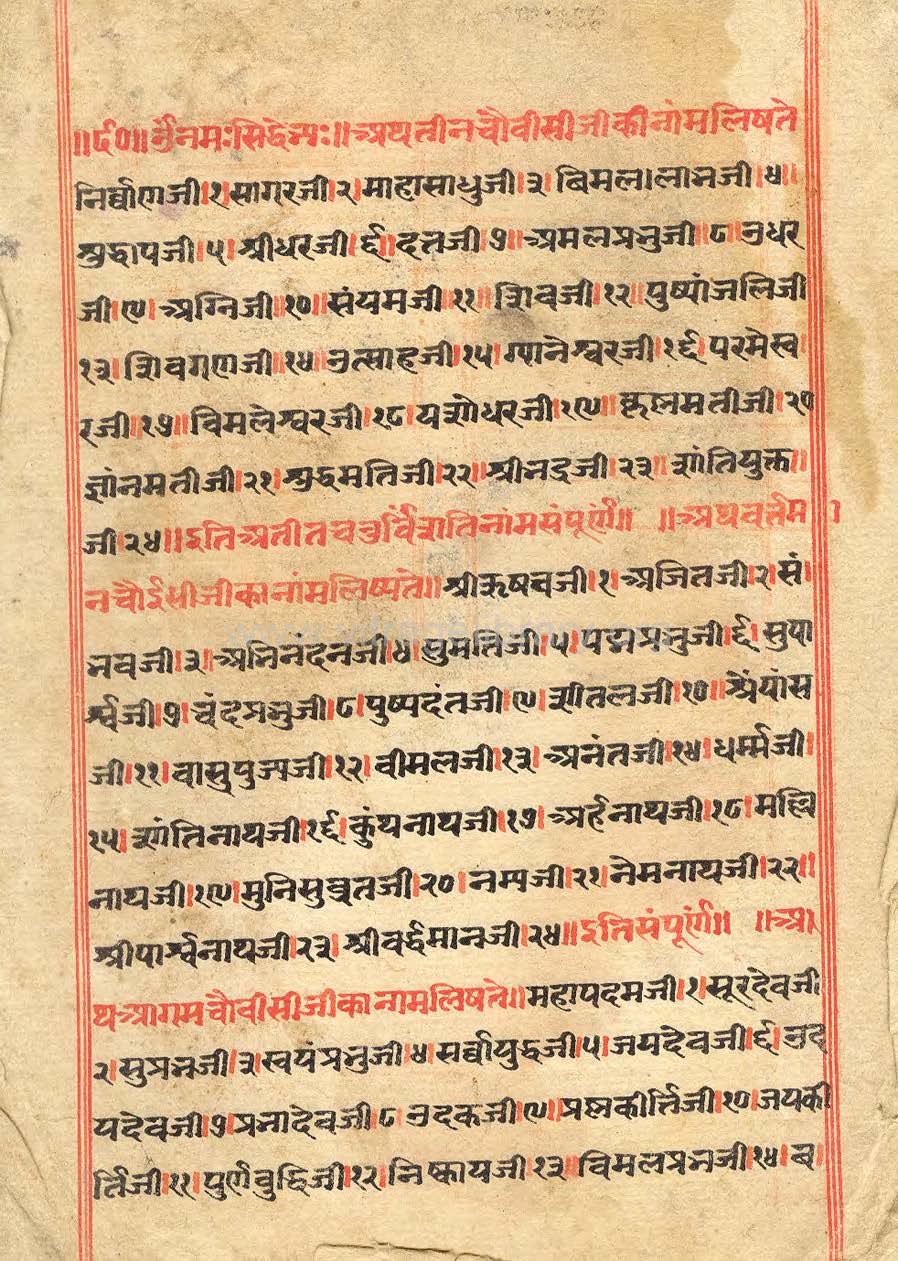 ॥र्द०॥ र्उ नमः सिद्धेभ्यः॥ अथ तीन चौवीसीजी की नांम लिषते
निर्व्वाणजी।१।सागरजी।२।माहासाधुजी।३।बिमललाभजी।४॥
श्रुद्धापजी।५।श्रीधरजी।६।दतजी।७॥अमलप्रभुजी॥८।उधर
जी।९।अग्निजी॥१०॥संयमजी।११॥शिवजी।१२॥पुष्पांजलिजी
१३।शिवगणजी॥१४।उत्साहजी।१५।ग्यानेश्वरजी।१६।परमेस्व
रजी॥१७॥विमलेश्वरजी॥१८।यशोधरजी॥१९॥कृष्णमतीजी॥२०
ज्ञांनमतीजी।२१।श्रुद्धमतिजी।२२॥श्रीभद्रजी॥२३॥शांतियुक्त॥
जी।२४॥इति अतीत चतुर्विंशति नांम संपूर्णं॥ ॥अथ वर्त्तम
न चौईसीजी का नांम लिष्यते॥श्री ऋषवजी।१।अजितजी।२।सं
भवजी।३।अभिनंदनजी।४।सुमतिजी।५।पद्मप्रभुजी।६।सुपा
र्श्वजी।७।चंदप्रभुजी।८।पुष्पदंतजी।९।शीतलजी।१०।श्रेयांस
जी।११।वासुपुज्यजी।१२।वीमलजी।१३।अनंतजी।१४।धर्म्मजी।
१५।शांतिनाथजी।१६।कुंथनाथजी।१७।अर्हनाथजी।१८।मल्लि
नाथजी।१९।मुनिसुव्रतजी।२०।नम्यजी।२१।नेमनाथजी।२२॥
श्रीपार्श्वनाथजी।२३।श्रीवर्द्धमानजी।२४॥इति संपूर्णं॥ ॥अ।
थ आगम चौवीसीजी का नाम लिषते॥महापदमजी।१।सूरदेवजी
२।सुप्रभजी।३।स्वयंप्रभुजी।४।सर्व्वायुद्धजी।५।जयदेवजी।६।उद
यदेवजी।७।प्रभादेवजी।८।उदकजी।९।प्रष्णकीर्तिजी।१०।जयकी
र्तिजी।११।पुर्णबुद्धिजी।१२।निष्कायजी।१३॥विमलप्रभजी।१४।ब